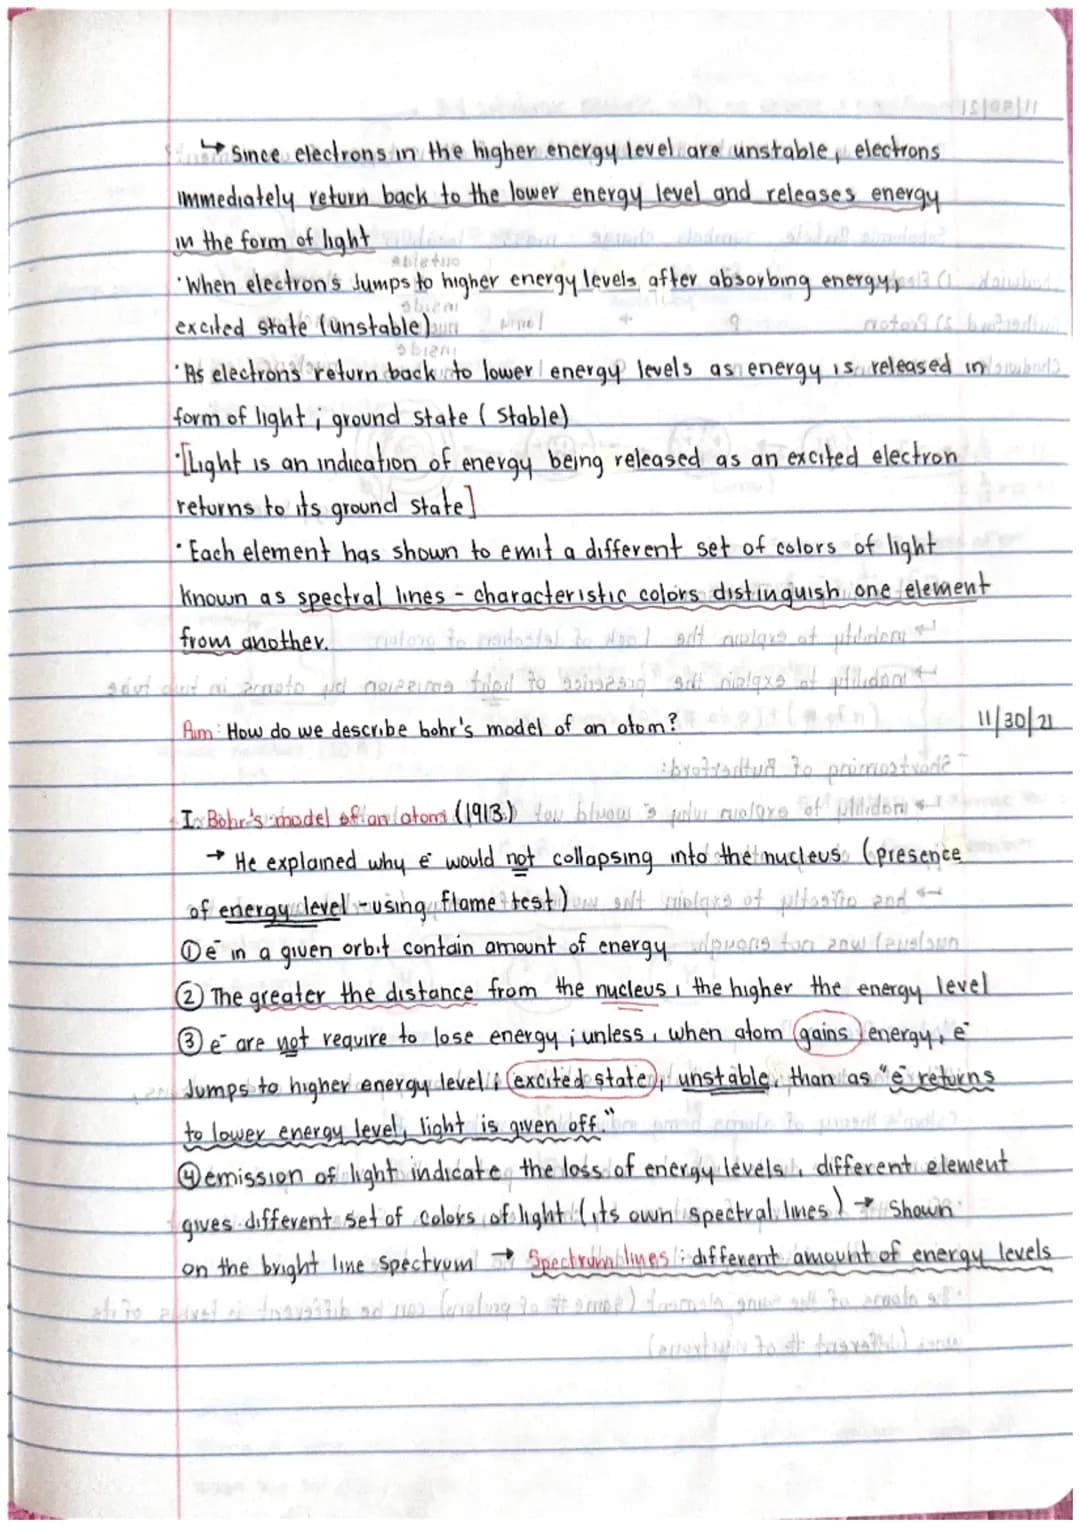 ↳ Since electrons in the higher energy level are unstable, electrons
immediately return back to the lower energy level and releases energy
in the form of light
·When electrons Jumps to higher energy levels after absorbing energy;
excited state (unstable)
·As electrons return back to lower energy levels as energy is released in
form of light; ground state (Stable)
·[Light is an indication of energy being released as an excited electron
returns to its ground state]
·Each element has shown to emit a different set of colors of light
known as spectral lines - characteristic colors distinguish one element
from another.
Aim: How do we describe bohr's model of an atom? 11/30/21
I. Bohr's model of an atom (1913)
→ He explained why e⁻ would not collapsing into the nucleus (presence
of energy level - using flame test)
① e⁻ in a given orbit contain amount of energy
② The greater the distance from the nucleus, the higher the energy level
③ e⁻ are not require to lose energy; unless, when atom gains energy, e⁻
Jumps to higher energy level; excited state, unstable, than as "e⁻ returns
to lower energy level, light is given off."
④ emission of light indicate the loss of energy levels, different element
gives different set of colors of light (its own spectral lines) → Shown
on the bright line spectrum → Spectrum lines: different amount of energy levels